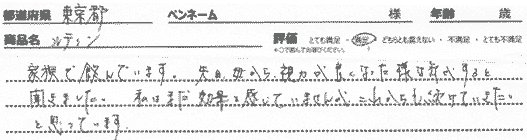 都道府県 東京都 ペンネーム 様 年齢 歳
商品名 ルテイン 評価 とても満足 ・ 満足 ・ どちらとも言えない ・ 不満足 ・ とても不満足
※○で囲んでお選びください。
家族で飲んでいます。先日、母から、視力が良くなった様な気がすると
聞きました。私はまだ効果を感じていませんが、これからも続けていきたい
と思っています。